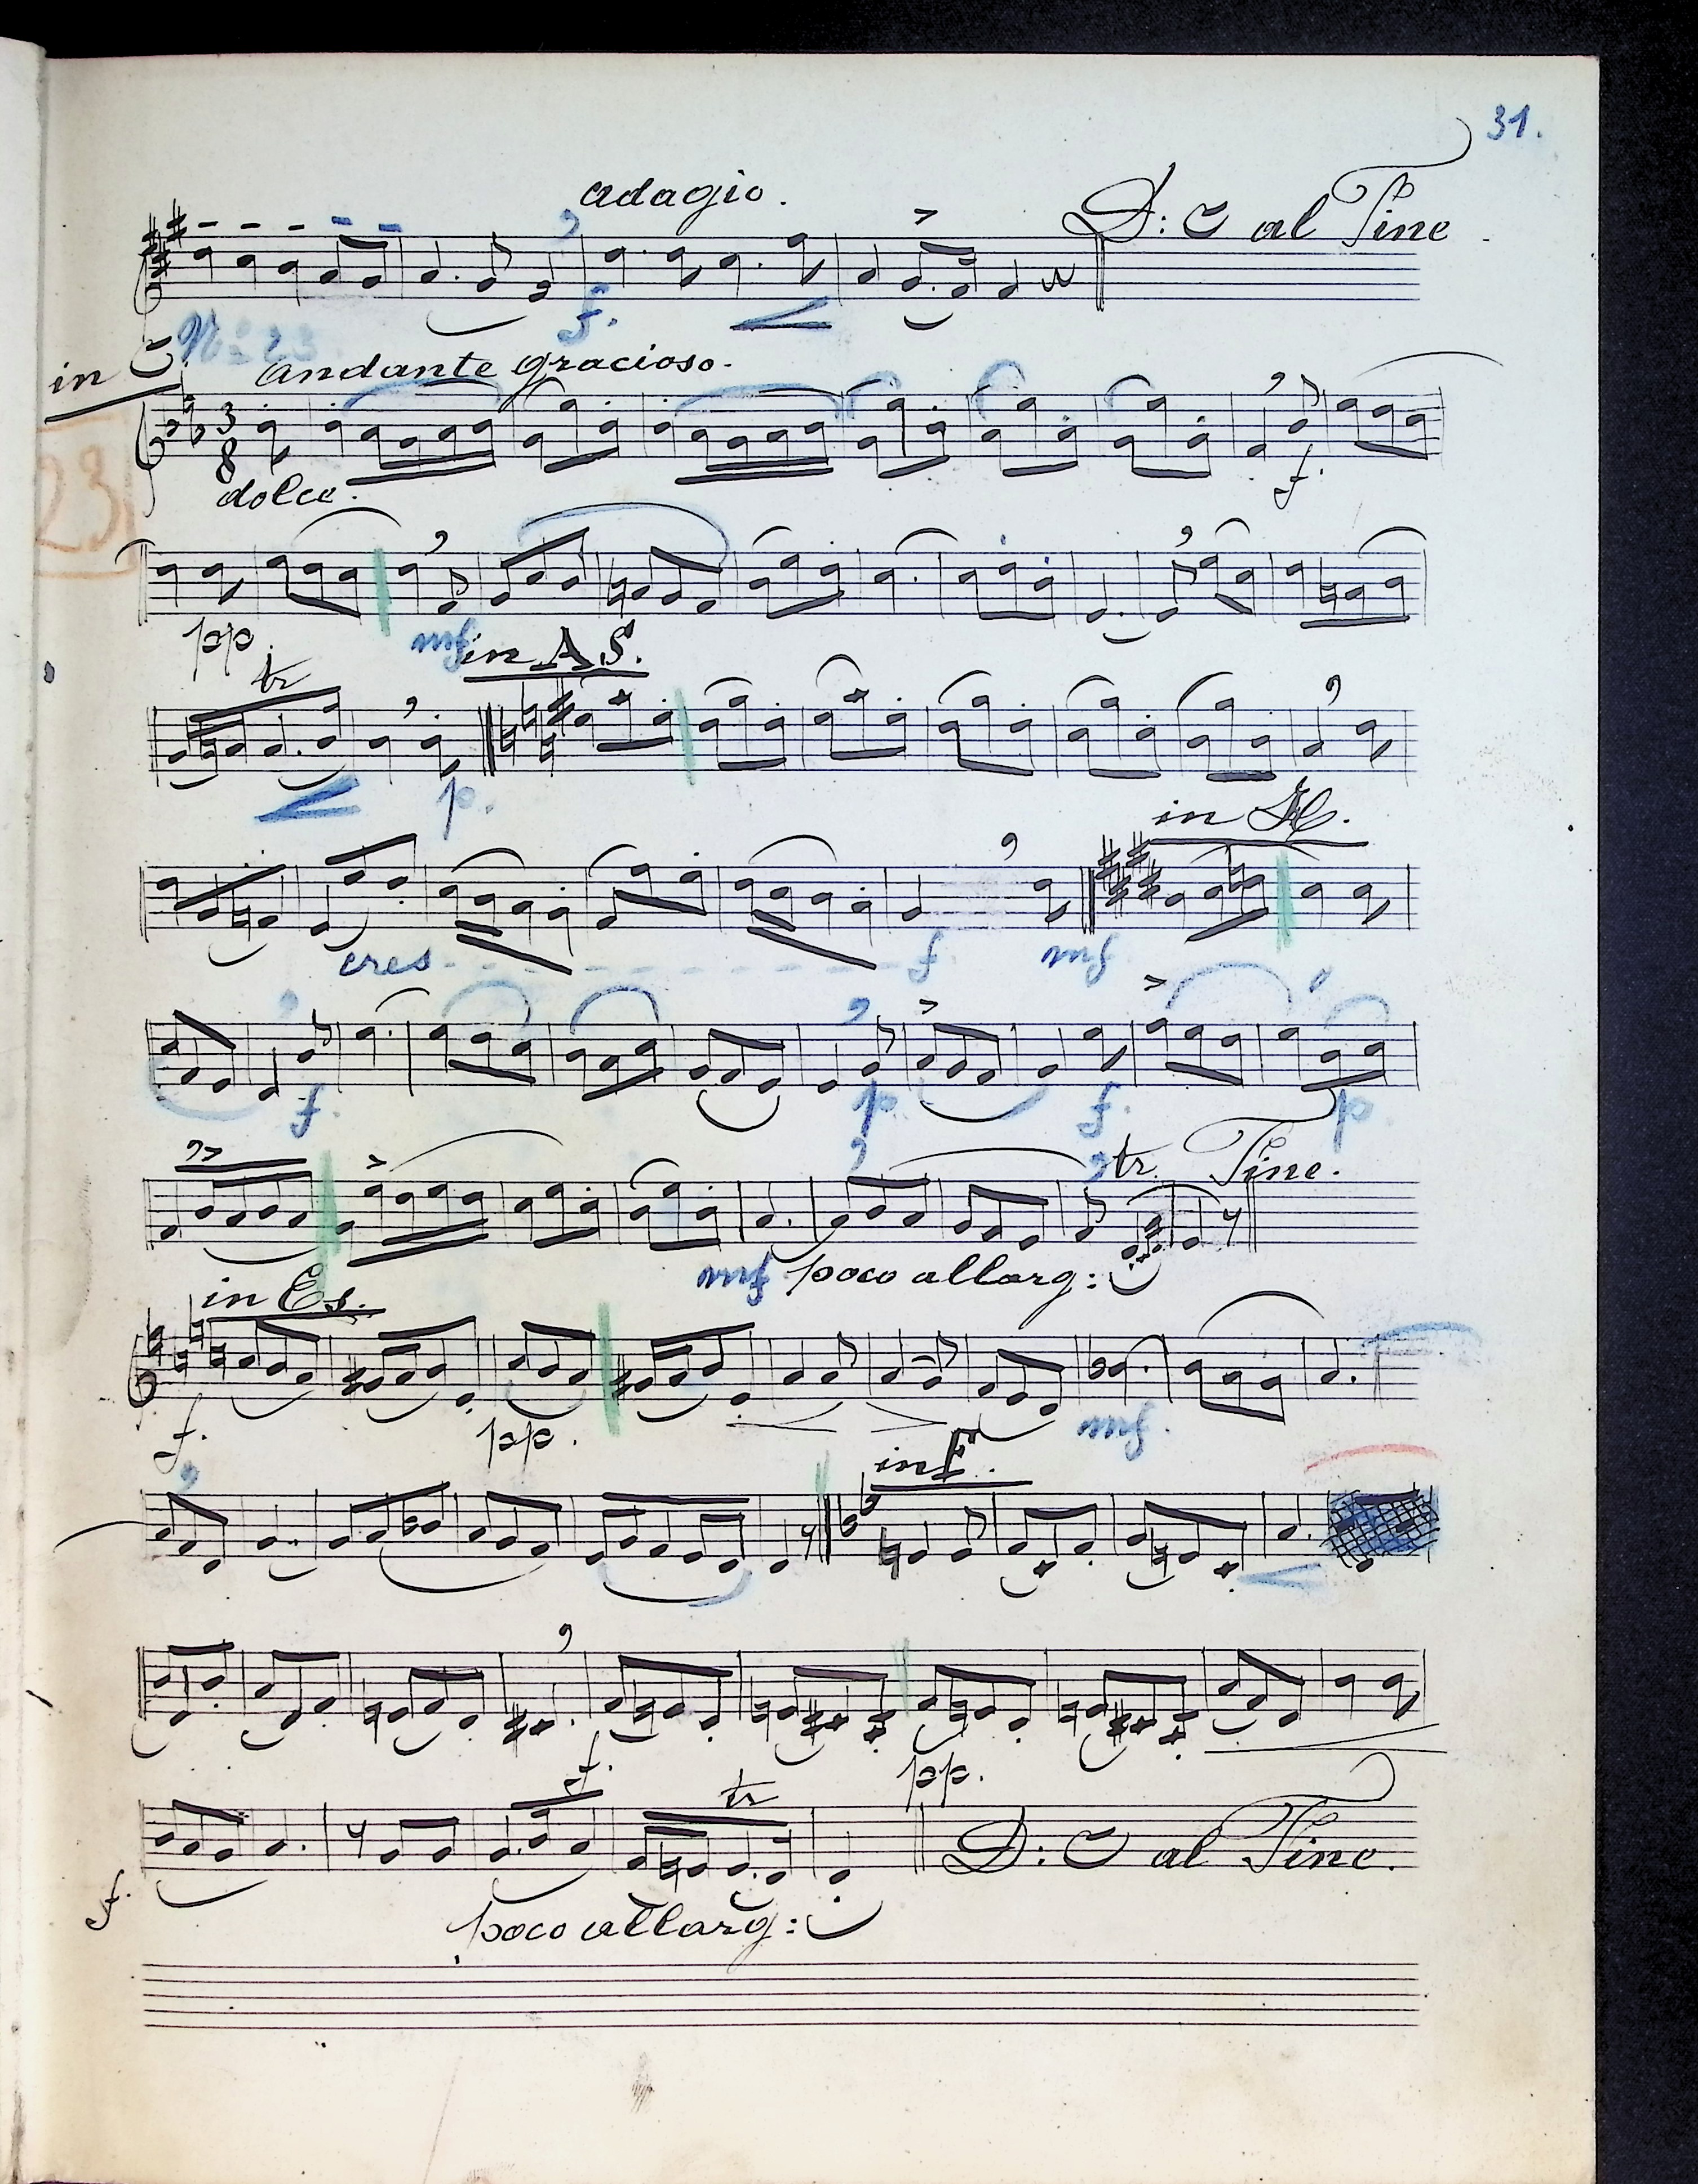 31.
adagio.
D: C al Fine.
f.
No 23
in C
andante gracioso.
3
8
dolce.
f.
23
pp.
mf
in AS.
tr
p.
in H.
cres
f
mf
f.
p
f.
p
tr. Fine.
mf poco allarg:
in Es.
f.
pp.
mf.
in F.
f.
pp.
tr
D: C al Fine.
f.
poco allarg: